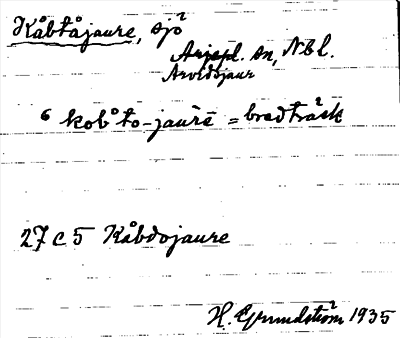 Kåbtåjaure, sjö
Arjepl. sn, Nbl.
Arvidsjaur
6 kobo to-jaurē = bredträsk
27 C 5 Kåbdojaure
H. Grundström 1935